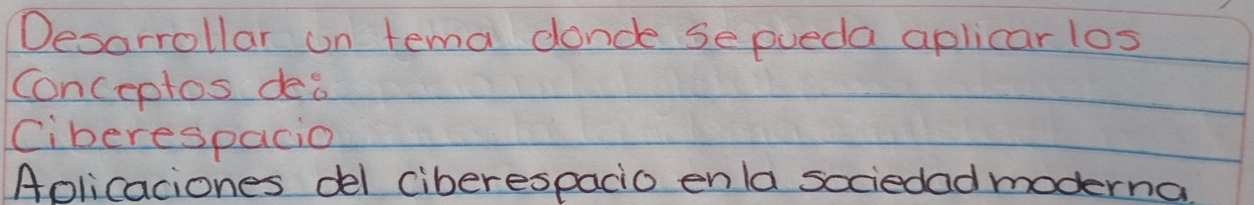 Desarrollar un tema donde se pueda aplicar los
Conceptos de:
Ciberespacio
Aplicaciones del ciberespacio en la sociedad moderna